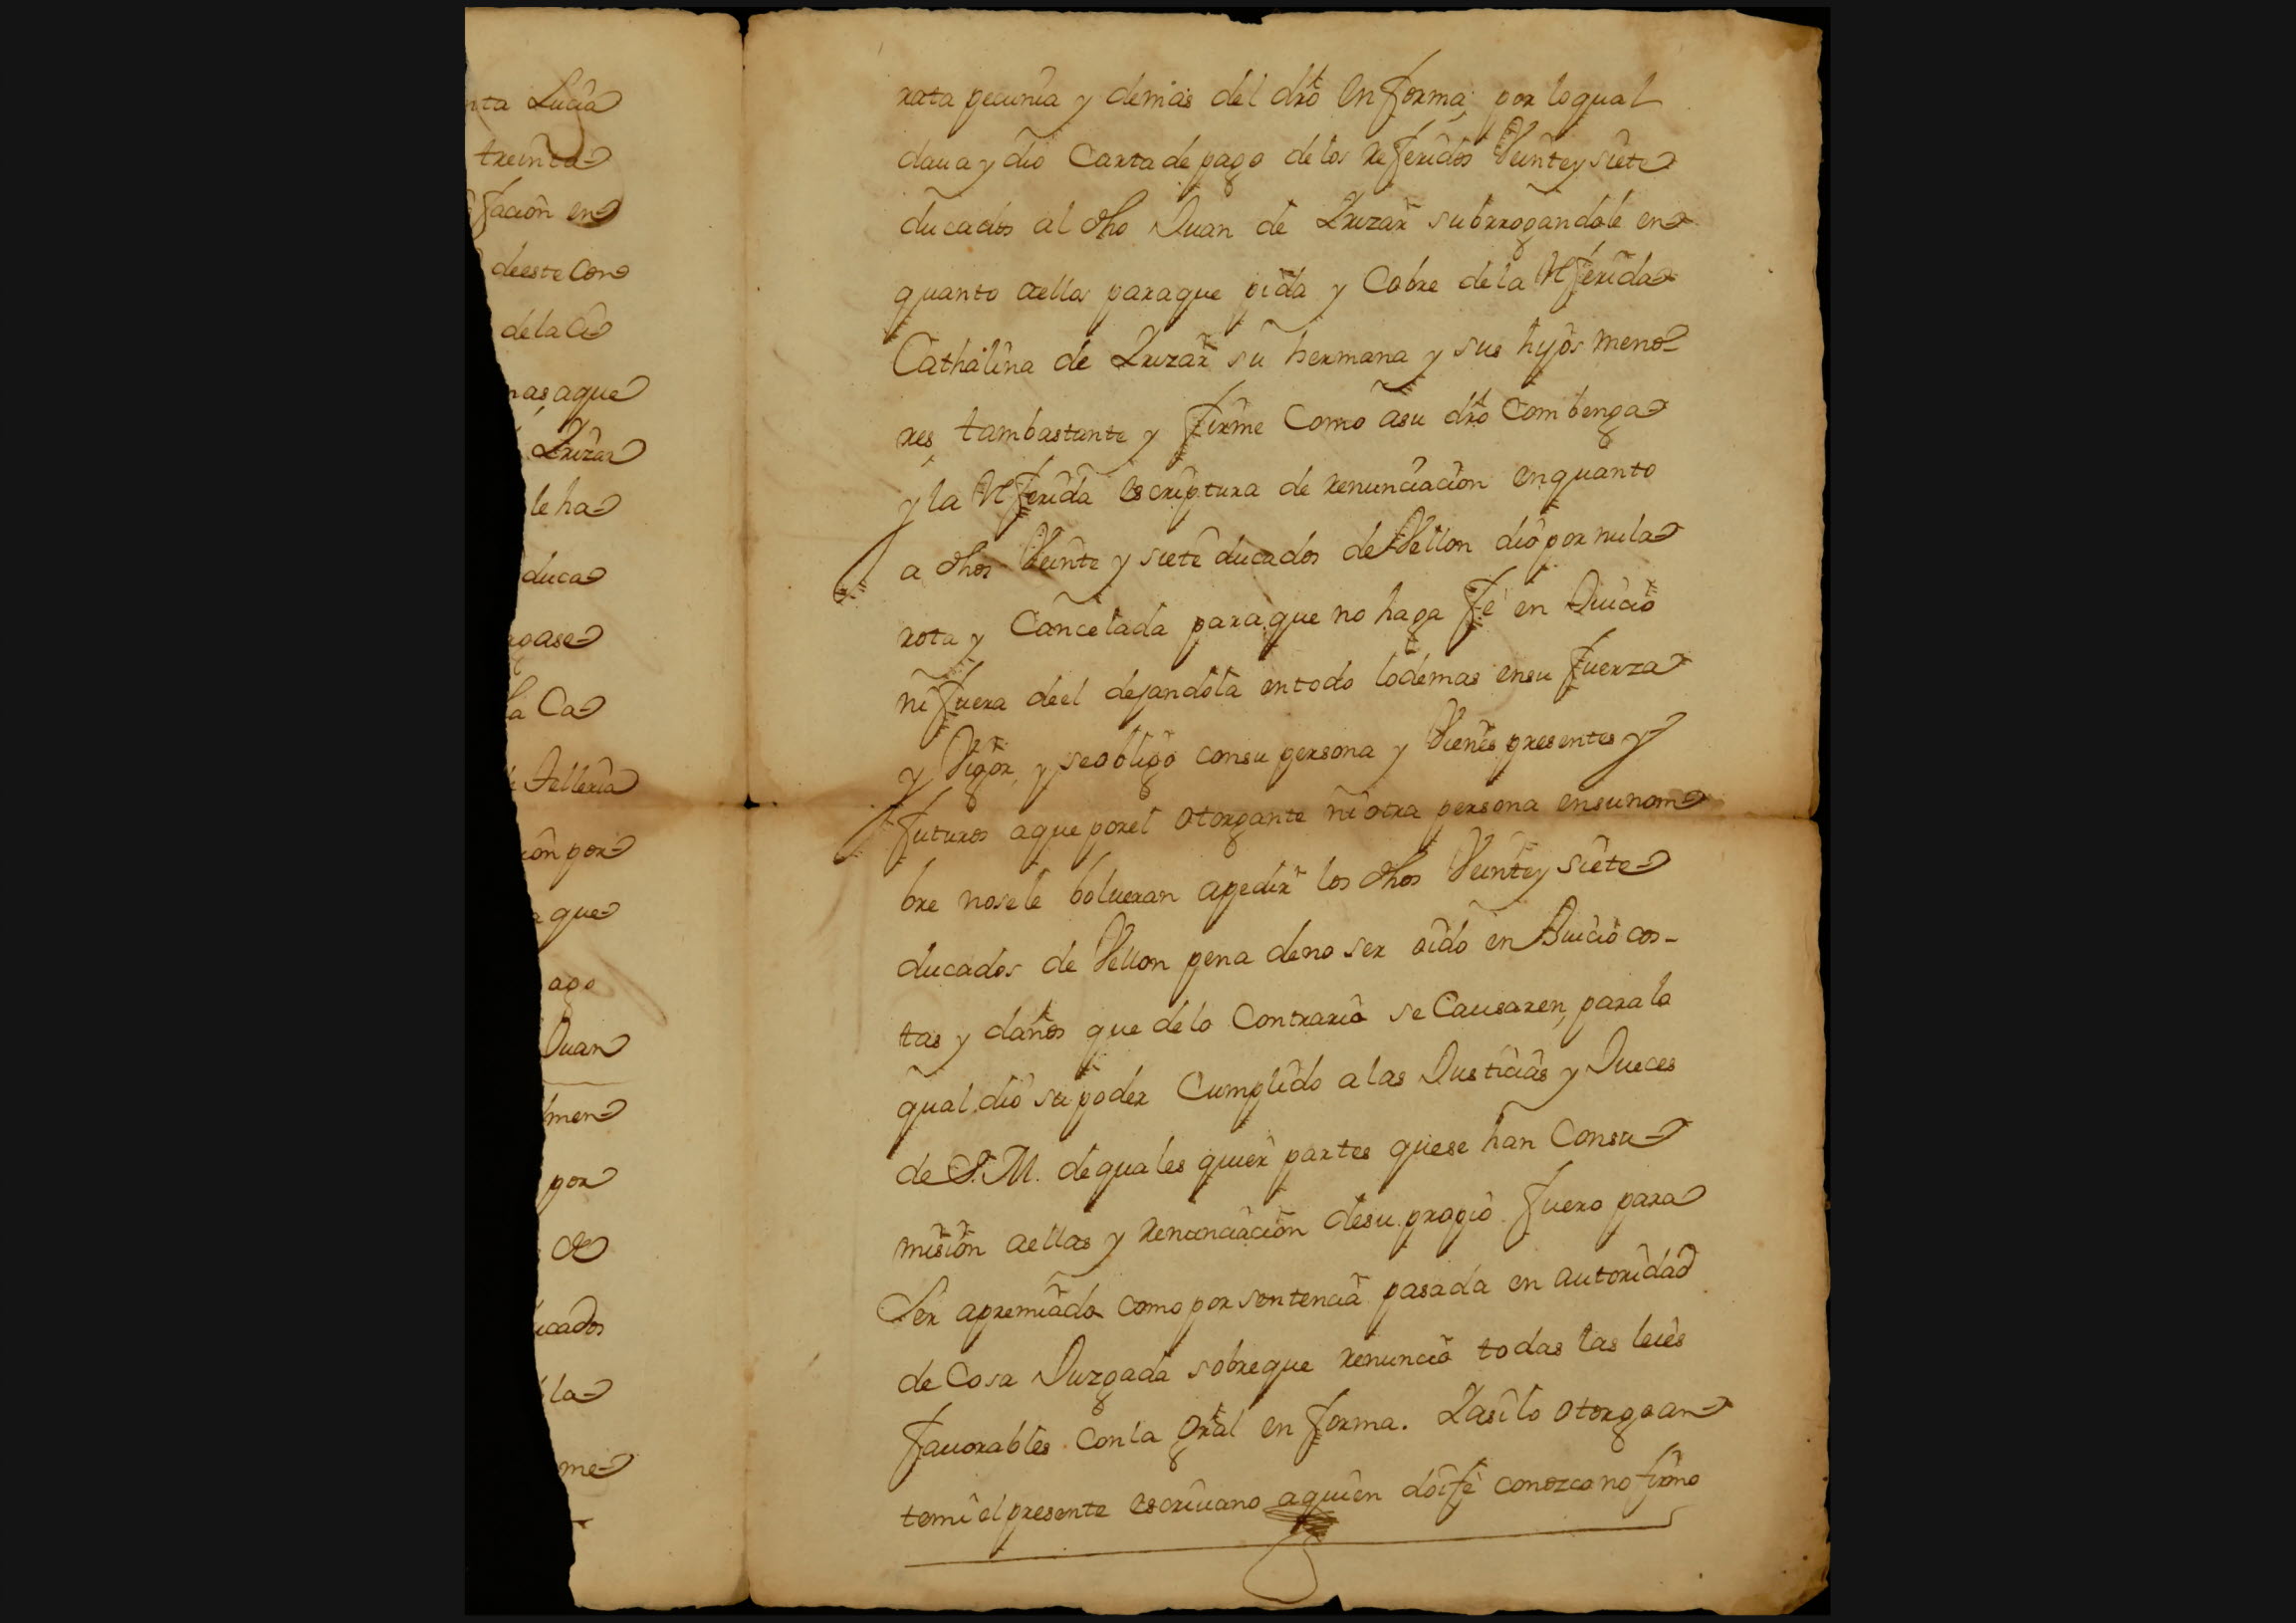 nta Lucia
treinta
facion en
deeste Con
de la Ci
nas, aque
Yrizar
le ha
duca
agase
la Ca
Telleria
ion por
a que
ago
Juan
men
por
de
ucados
la
me
rata pecunia y demas del dro en forma, por lo qual
daua y dio Carta de pago de los referidos Veinte y siete
ducados al dho Juan de Yrizar subrrogandole en
quanto aellos paraque pida y Cobre de la referida
Cathalina de Yrizar su hermana y sus hijos meno-
res, tambastante y firme Como asu dro Combenga
y la referida escriptura de renunciacion enquanto
a dhos Veinte y siete ducados de Vellon dio por nula
rota y Cancelada paraque no haga fe en Juicio
ni fuera deel dejandola entodo lodemas ensu fuerza
y Vigor, y seobligo consu persona y Vienes presentes y
futuros aque porel otorgante ni otra persona ensunom
bre nosele bolueran apedir los dhos Veinte y siete
ducados de Vellon pena deno ser oido en Juicio cos-
tas y daños que de lo Contrario se Causaren, para lo
qual dio su poder Cumplido a las Justicias y Jueces
de S. M. de quales quier partes quese han Consu
mision aellas y renunciacion desu propio fuero para
Ser apremiado como por sentencia pasada en autoridad
de Cosa Juzgada sobreque renuncio todas las leies
fauorables Conla Gral en forma. Yasilo otorgo an
temi el presente escriuano aquien doi fe conozco no firmo